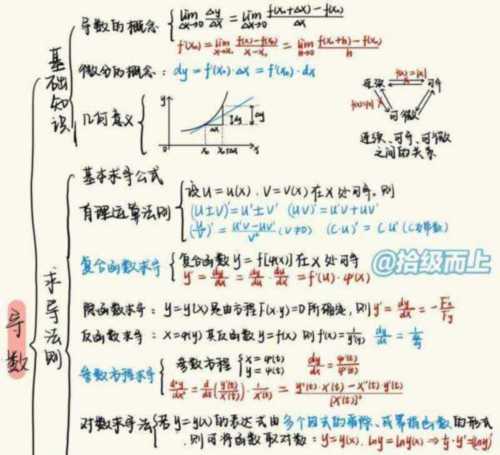 导数
基础知识
导数的概念 { lim Δx→0 Δy/Δx = lim Δx→0 f(x₀+Δx)-f(x₀)/Δx
f'(x₀) = lim x→x₀ f(x)-f(x₀)/x-x₀ = lim h→0 f(x₀+h)-f(x₀)/h
微分的概念：dy = f'(x₀)·Δx = f'(x₀)·dx
几何意义
y
dy
Δy
Δx
x₀ x₀+Δx x
连续 可导
可微
连续、可导、可微
之间的关系
求导法则
基本求导公式
有理运算法则 { 设u=u(x)，v=v(x)在x处可导，则
(u±v)'=u'±v' (uv)'=u'v+uv'
(u/v)' = u'v-uv'/v² (v≠0) (c·u)'=cu'(c为常数)
复合函数求导 { 复合函数y=f[φ(x)]在x处可导
y' = dy/dx = dy/du · du/dx = f'(u)·φ'(x)
@拾级而上
隐函数求导：y=y(x)是由方程F(x·y)=0所确定，则y'=dy/dx=-Fx/Fy
反函数求导：x=φ(y)其反函数y=f(x)则
参数方程求导 { 参数方程 { x=φ(t) y=ψ(t) dy/dx = ψ'(t)/φ'(t)
d²y/dx² = d/dt(y'(t)/x'(t))·1/x'(t) = y''(t)·x'(t)-x''(t)y'(t)/[x'(t)]³
对数求导法 { 若y=y(x)的表达式由多个因式的乘除、或幂指函数的形式
则可将函数取对数：y=y(x)，lny=lny(x) ⇒ 1/y·y'=(lny)'